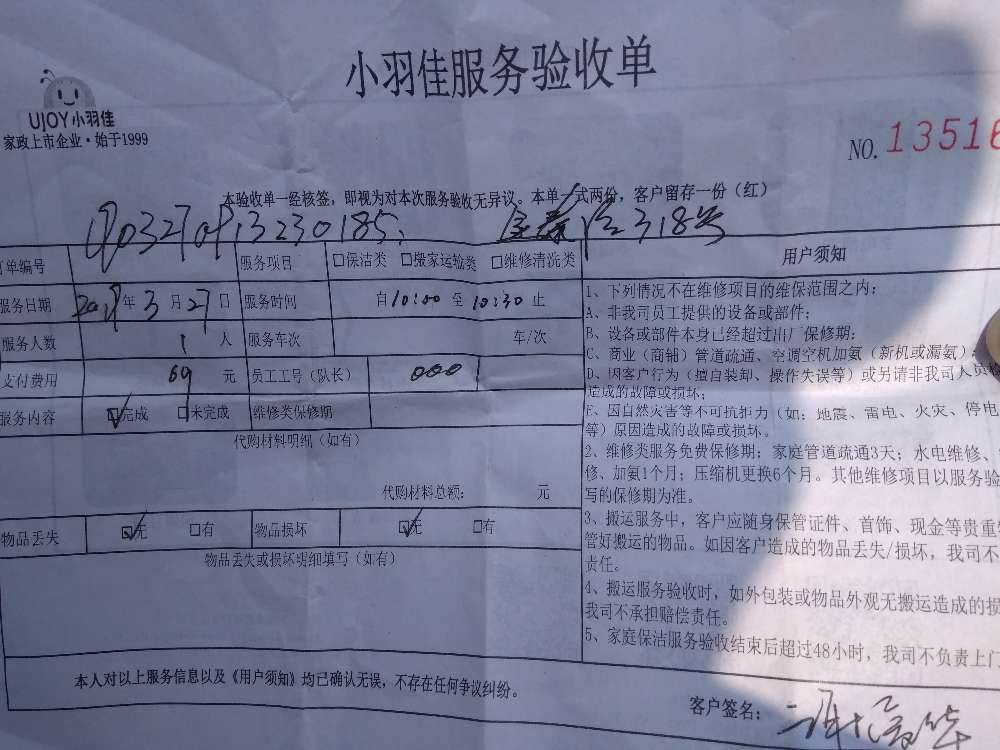 小羽佳服务验收单
UJOY小羽佳
家政上市企业·始于1999
NO. 13516
本验收单一经核签，即视为对本次服务验收无异议。本单一式两份，客户留存一份（红）
单编号 服务项目 □保洁类 □搬家运输类 □维修清洗类
服务日期 2019年3月27日 服务时间 自10:00至10:30止
服务人数 1人 服务车次 车/次
支付费用 69元 员工工号（队长） 000
服务内容 ☑完成 □未完成 维修类保修期
代购材料明细（如有）
代购材料总额： 元
物品丢失 ☑无 □有 物品损坏 ☑无 □有
物品丢失或损坏明细填写（如有）
用户须知
1、下列情况不在维修项目的维保范围之内：
A、非我司员工提供的设备或部件；
B、设备或部件本身已经超过出厂保修期；
C、商业（商铺）管道疏通、空调空机加氨（新机或漏氨）；
D、因客户行为（擅自装卸、操作失误等）或另请非我司人员
造成的故障或损坏；
E、因自然灾害等不可抗拒力（如：地震、雷电、火灾、停电
等）原因造成的故障或损坏。
2、维修类服务免费保修期：家庭管道疏通3天；水电维修、
修、加氨1个月；压缩机更换6个月。其他维修项目以服务验
写的保修期为准。
3、搬运服务中，客户应随身保管证件、首饰、现金等贵重
管好搬运的物品。如因客户造成的物品丢失/损坏，我司不
责任。
4、搬运服务验收时，如外包装或物品外观无搬运造成的损
我司不承担赔偿责任。
5、家庭保洁服务验收结束后超过48小时，我司不负责上门
本人对以上服务信息以及《用户须知》均已确认无误，不存在任何争议纠纷。
客户签名：